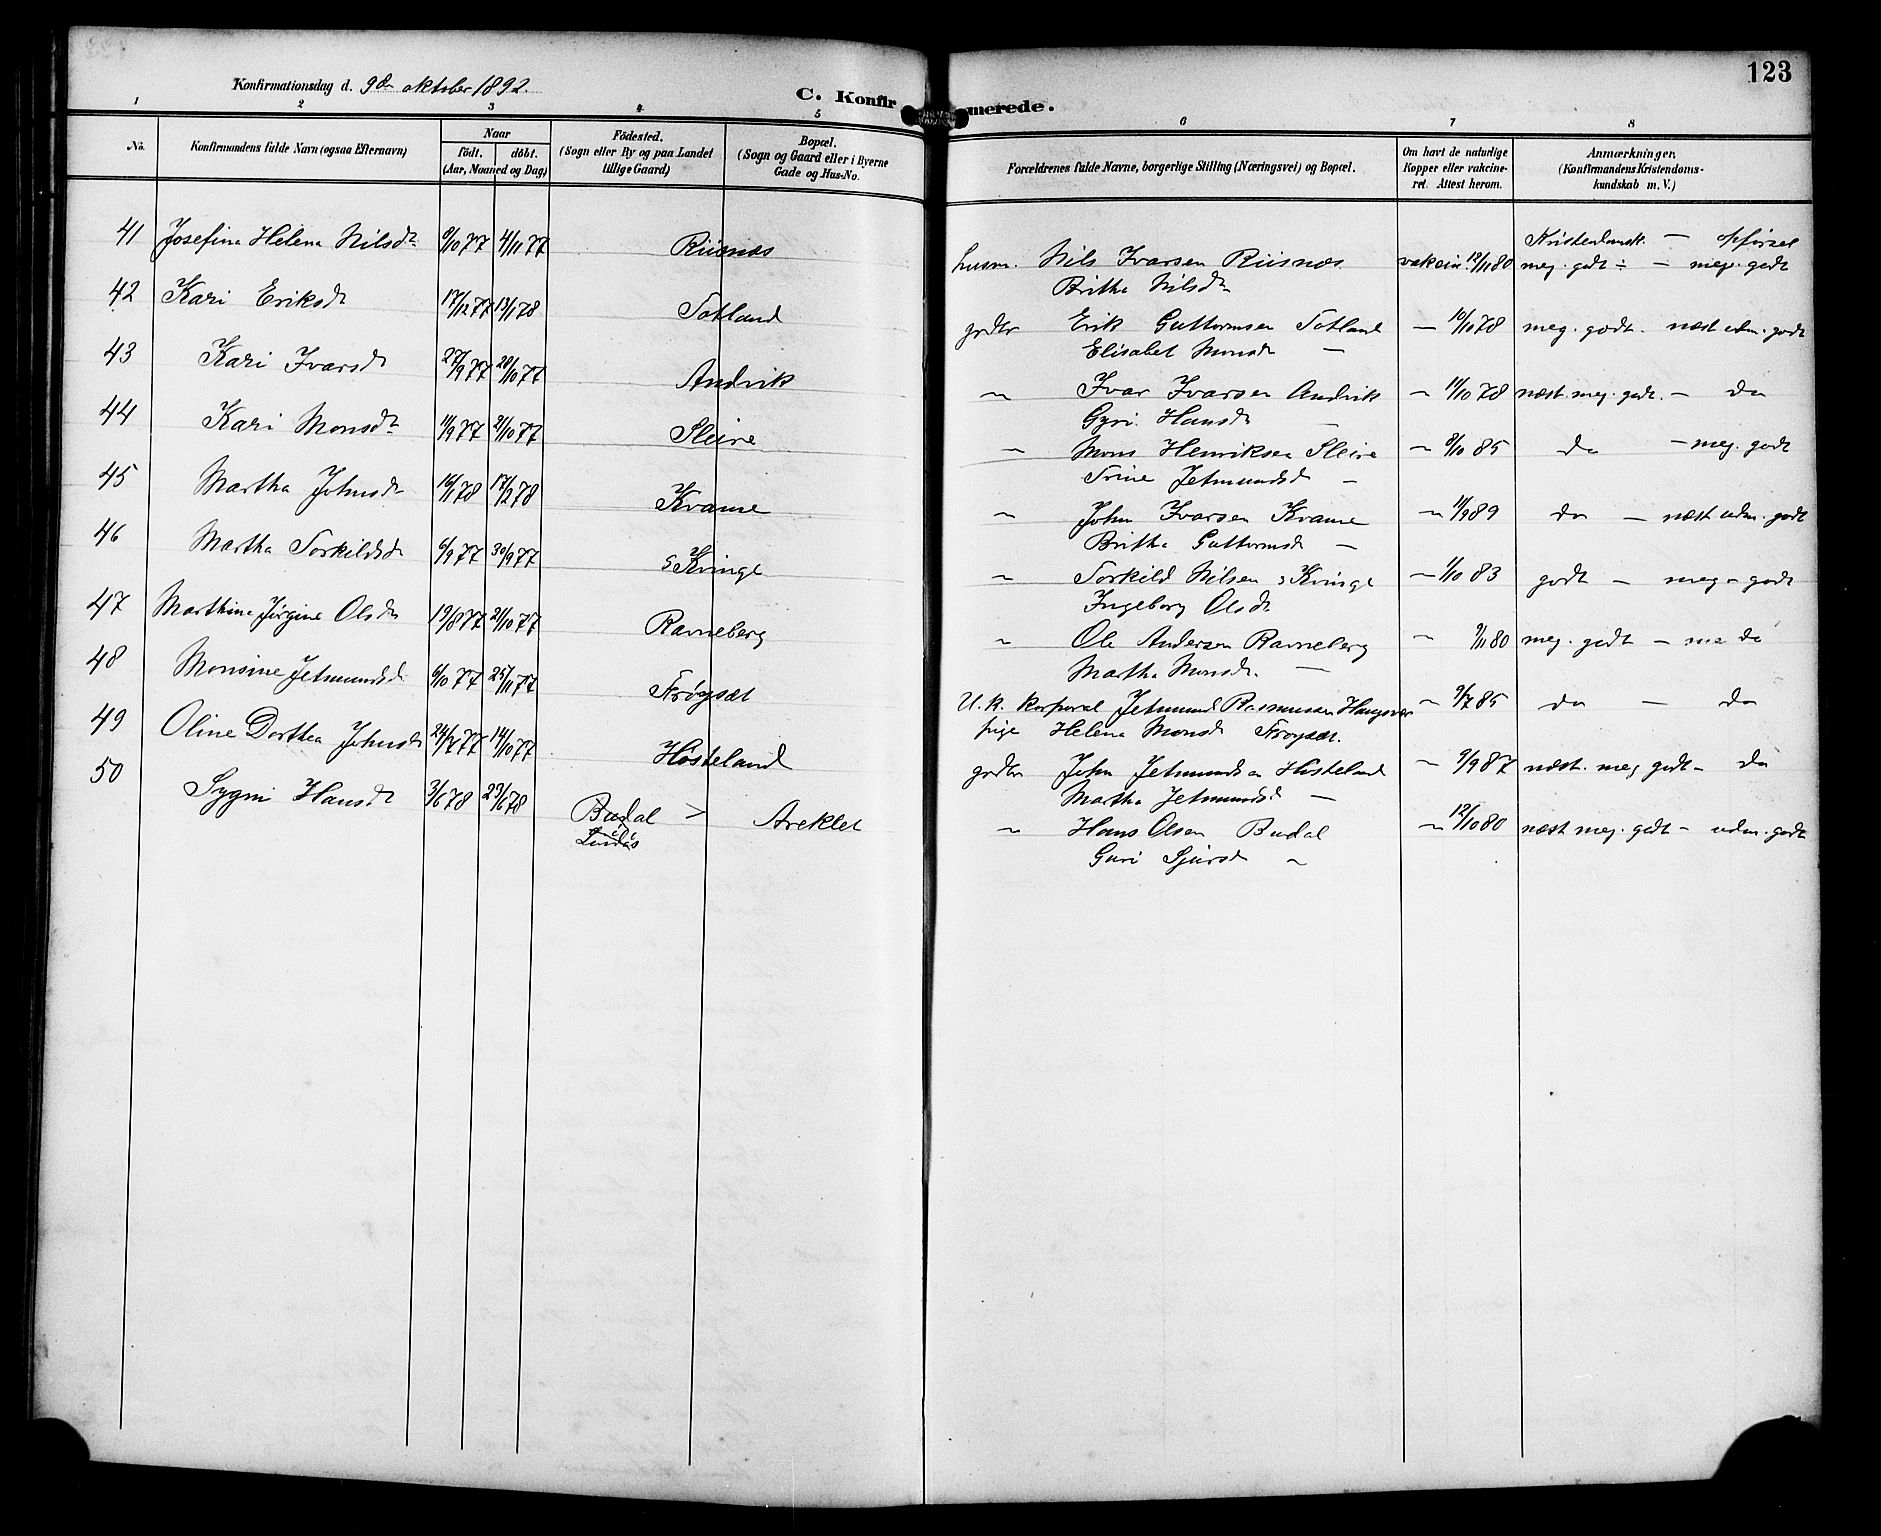 123
Konfirmationsdag d. 9de oktober 1892.
C. Konfirmerede.
1 2 3 4 5 6 7 8
No. Konfirmandens fulde Navn (ogsaa Efternavn) Naar födt. döbt. (Aar, Maaned og Dag) Födested. (Sogn eller By og paa Landet tillige Gaard) Bopæl. (Sogn og Gaard eller i Byerne Gade og Hus-No. Forældrenes fulde Navne, borgerlige Stilling (Næringsvei) og Bopæl. Om havt de naturlige Kopper eller vakcineret. Attest herom. Anmærkninger. (Konfirmandens Kristendomskundskab m. V.)
Kristendomsk. — opførsel
41 Josefine Helena Nilsdt 6/10 77 4/11 77 Riisnæs husm. Nils Ivarsen Riisnæs vakcin. 12/11 80 meg. godt ÷ — meg. godt
Britha Nilsdt
42 Kari Eriksdt 17/12 77 13/1 78 Totland grdbr Erik Guttormsen Totland — 10/10 78 meg. godt. næst udm. godt
Elisabet Monsdt —
43 Kari Ivarsdt 27/9 77 28/10 77 Andvik — Ivar Ivarsen Andvik — 11/10 78 næst meg. godt. — do
Gyri Hansdt —
44 Kari Monsdt 11/9 77 21/10 77 Sleire — Mons Henriksen Sleire — 8/10 85 do — meg. godt
Trine Jetmundsdt —
45 Martha Johnsdt 16/1 78 17/2 78 Kvame — John Ivarsen Kvame — 11/9 89 do — næst udm. godt
Britha Guttormsdt —
46 Martha Torkildsdt 6/9 77 30/9 77 s Kvinge — Torkild Nilsen s Kvinge — 1/10 83 godt — meg — godt
Ingeborg Olsdt
47 Marthine Jørgine Olsdt 19/8 77 21/10 77 Ravneberg — Ole Andersen Ravneberg — 9/11 80 meg. godt — do
Martha Monsdt —
48 Monsine Jetmundsdt 6/10 77 25/11 77 Frøysæt U.k. korporal Jetmund Rasmussen — 9/7 85 do — do
pige Helena Monsdt Frøysæt.
49 Oline Dorthea Johnsdt 24/7 77 14/10 77 Høsteland grdbr John Jetmundsen Høsteland — 9/9 87 næst. meg godt — do
Martha Jetmundsdt —
50 Sygni Hansdt 3/6 78 23/6 78 Budal > Areklet — Hans Olsen Budal — 12/10 80 næst meg. godt — udm. godt
Lindås Guri Sjursdt —